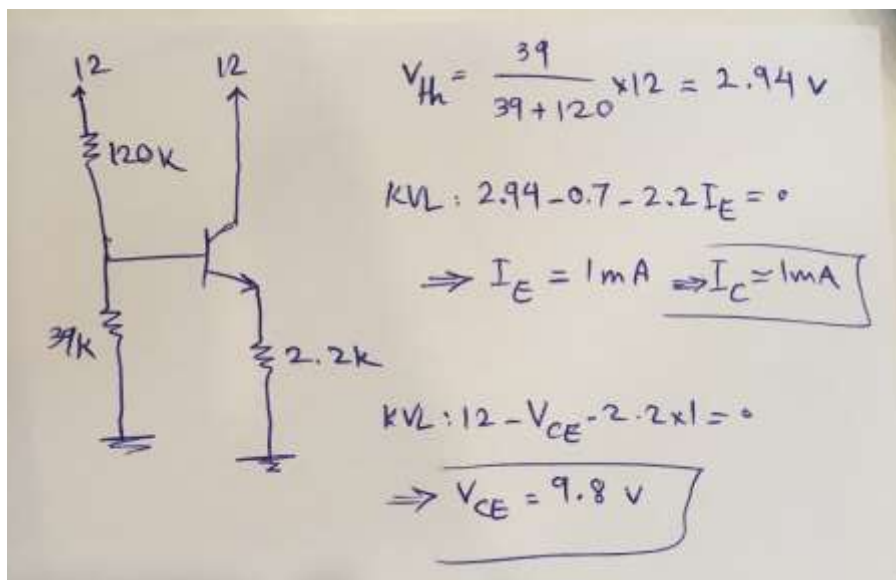 12
12
120K
39K
2.2K
V_th = 39 / (39 + 120) × 12 = 2.94 V
KVL : 2.94 - 0.7 - 2.2 I_E = 0
⇒ I_E = 1 mA ⇒ I_C ≃ 1mA
KVL : 12 - V_CE - 2.2 × 1 = 0
⇒ V_CE = 9.8 V